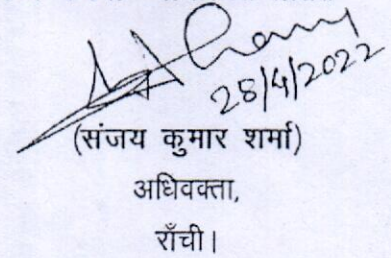 28/4/2022
(संजय कुमार शर्मा)
अधिवक्ता,
राँची।